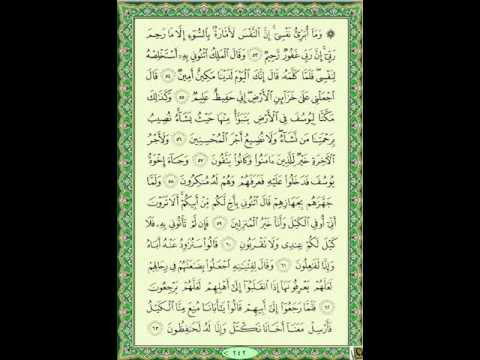 ۞ وَمَا أُبَرِّئُ نَفْسِي ۚ إِنَّ النَّفْسَ لَأَمَّارَةٌ بِالسُّوءِ إِلَّا مَا رَحِمَ
رَبِّي ۚ إِنَّ رَبِّي غَفُورٌ رَّحِيمٌ ٥٣ وَقَالَ الْمَلِكُ ائْتُونِي بِهِ أَسْتَخْلِصْهُ
لِنَفْسِي ۖ فَلَمَّا كَلَّمَهُ قَالَ إِنَّكَ الْيَوْمَ لَدَيْنَا مَكِينٌ أَمِينٌ ٥٤ قَالَ
اجْعَلْنِي عَلَىٰ خَزَائِنِ الْأَرْضِ ۖ إِنِّي حَفِيظٌ عَلِيمٌ ٥٥ وَكَذَٰلِكَ
مَكَّنَّا لِيُوسُفَ فِي الْأَرْضِ يَتَبَوَّأُ مِنْهَا حَيْثُ يَشَاءُ ۚ نُصِيبُ
بِرَحْمَتِنَا مَن نَّشَاءُ ۖ وَلَا نُضِيعُ أَجْرَ الْمُحْسِنِينَ ٥٦ وَلَأَجْرُ
الْآخِرَةِ خَيْرٌ لِّلَّذِينَ آمَنُوا وَكَانُوا يَتَّقُونَ ٥٧ وَجَاءَ إِخْوَةُ
يُوسُفَ فَدَخَلُوا عَلَيْهِ فَعَرَفَهُمْ وَهُمْ لَهُ مُنكِرُونَ ٥٨ وَلَمَّا
جَهَّزَهُم بِجَهَازِهِمْ قَالَ ائْتُونِي بِأَخٍ لَّكُم مِّنْ أَبِيكُمْ ۚ أَلَا تَرَوْنَ
أَنِّي أُوفِي الْكَيْلَ وَأَنَا خَيْرُ الْمُنزِلِينَ ٥٩ فَإِن لَّمْ تَأْتُونِي بِهِ فَلَا
كَيْلَ لَكُمْ عِندِي وَلَا تَقْرَبُونِ ٦٠ قَالُوا سَنُرَاوِدُ عَنْهُ أَبَاهُ
وَإِنَّا لَفَاعِلُونَ ٦١ وَقَالَ لِفِتْيَانِهِ اجْعَلُوا بِضَاعَتَهُمْ فِي رِحَالِهِمْ
لَعَلَّهُمْ يَعْرِفُونَهَا إِذَا انقَلَبُوا إِلَىٰ أَهْلِهِمْ لَعَلَّهُمْ يَرْجِعُونَ
٦٢ فَلَمَّا رَجَعُوا إِلَىٰ أَبِيهِمْ قَالُوا يَا أَبَانَا مُنِعَ مِنَّا الْكَيْلُ
فَأَرْسِلْ مَعَنَا أَخَانَا نَكْتَلْ وَإِنَّا لَهُ لَحَافِظُونَ ٦٣
٢٤٢